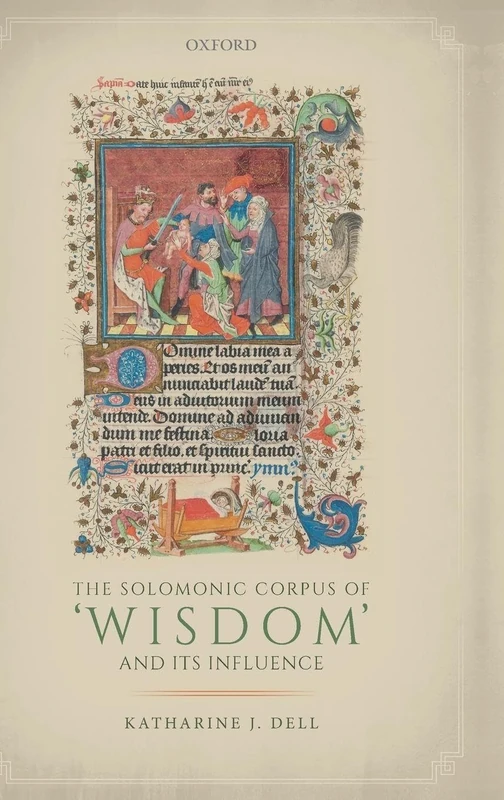 OXFORD
Domine labia mea a
peries. Et os meū an
nunciabit laudē tuā.
Deus in adiutorium meum
intende. Domine ad adiuuan
dum me festina. Gloria
patri et filio. et spiritui sancto.
Sicut erat in princ. ymn?
THE SOLOMONIC CORPUS OF
‘WISDOM’
AND ITS INFLUENCE
KATHARINE J. DELL